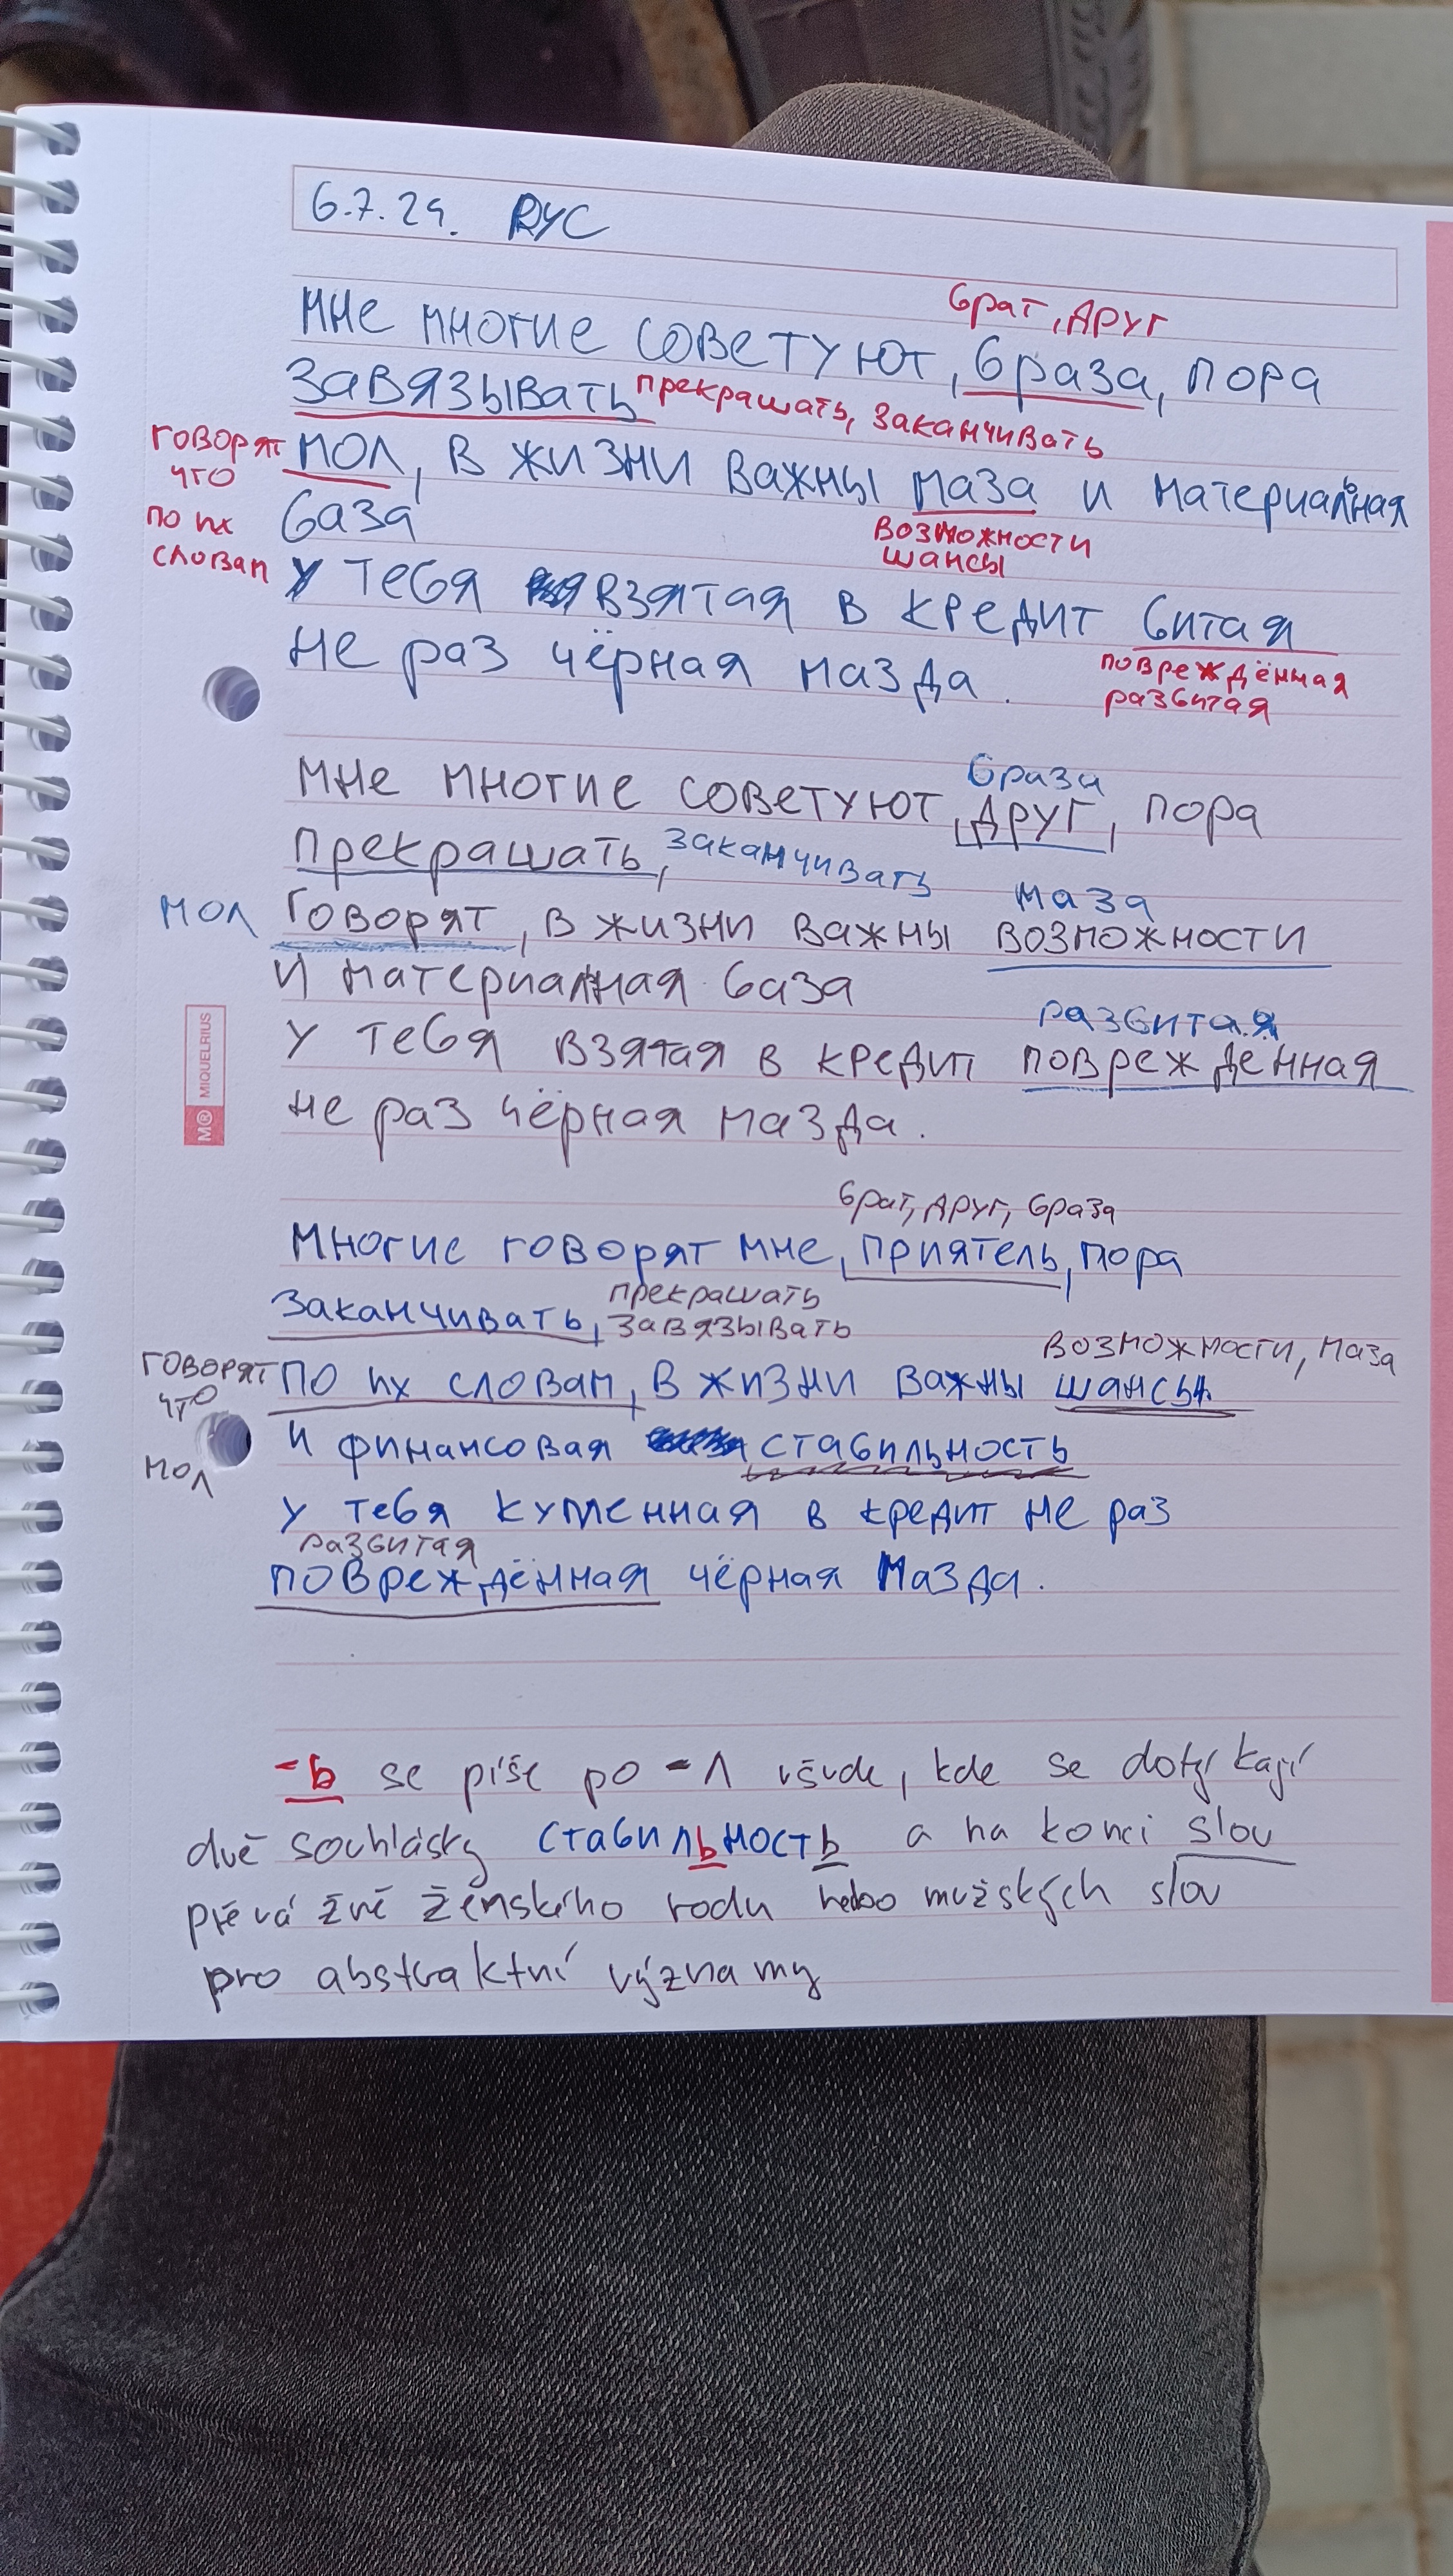 6.7.24. RУС
брат, друг
мне многие советуют, браза, пора
завязывать прекрашать, заканчивать
говорят мол, в жизни важны маза и материальная
что
по их база
возможности
словам
шансы
у тебя взятая в кредит битая
не раз чёрная мазда.
повреждённая
разбитая
браза
мне многие советуют, друг, пора
прекрашать, заканчивать
маза
мол говорят, в жизни важны возможности
и материалная база
разбитая
у тебя взятая в кредит поврежденная
не раз чёрная мазда.
MIQUELRIUS
брат, друг, браза
многие говорят мне, приятель, пора
прекрашать
заканчивать, завязывать
возможности, маза
говорят по их словам, в жизни важны шансы
что
и финансовая стабильность
мол
у тебя купленная в кредит не раз
разбитая
повреждённая чёрная Мазда.
-ь se píše po -л všude, kde se dotýkají
dvě souhlásky стабильность a na konci slov
převážně ženského rodu nebo mužských slov
pro abstraktní významy